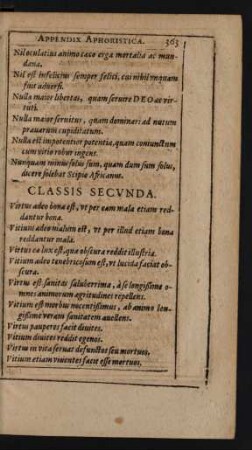 APPENDIX APHORISTICA. 363
Nil oculatius animo caco erga mortalia ac mun-
dana.
Nil est infelicius semper felici, cui nihil vnquam
fuit aduersi.
Nulla maior libertas, quàm seruire DEO ac vir-
tuti.
Nulla maior seruitus, quàm dominari ad nutum
prauarum cupiditatum.
Nulla est impotentior potentia, quàm coniunctum
cum vitio robur ingens.
Nunquam minùs solus sum, quàm dum sum solus,
dicere solebat Scipio Africanus.
CLASSIS SECVNDA.
Virtus adeò bona est, vt per eam mala etiam red-
dantur bona.
Vitium adeò malum est, vt per illud etiam bona
reddantur mala.
Virtus ea lux est, quæ obscura reddit illustria.
Vitium adeò tenebricosum est, vt lucida faciat ob-
scura.
Virtus est sanitas saluberrima, à se longissimè o-
mnes animorum ægritudines repellens.
Vitium est morbus nocentissimus, ab animo lon-
gissimè veram sanitatem auellens.
Virtus pauperes facit diuites.
Vitium diuites reddit egenos.
Virtus in vita seruat defunctos seu mortuos.
Vitium etiam viuentes facit esse mortuos.